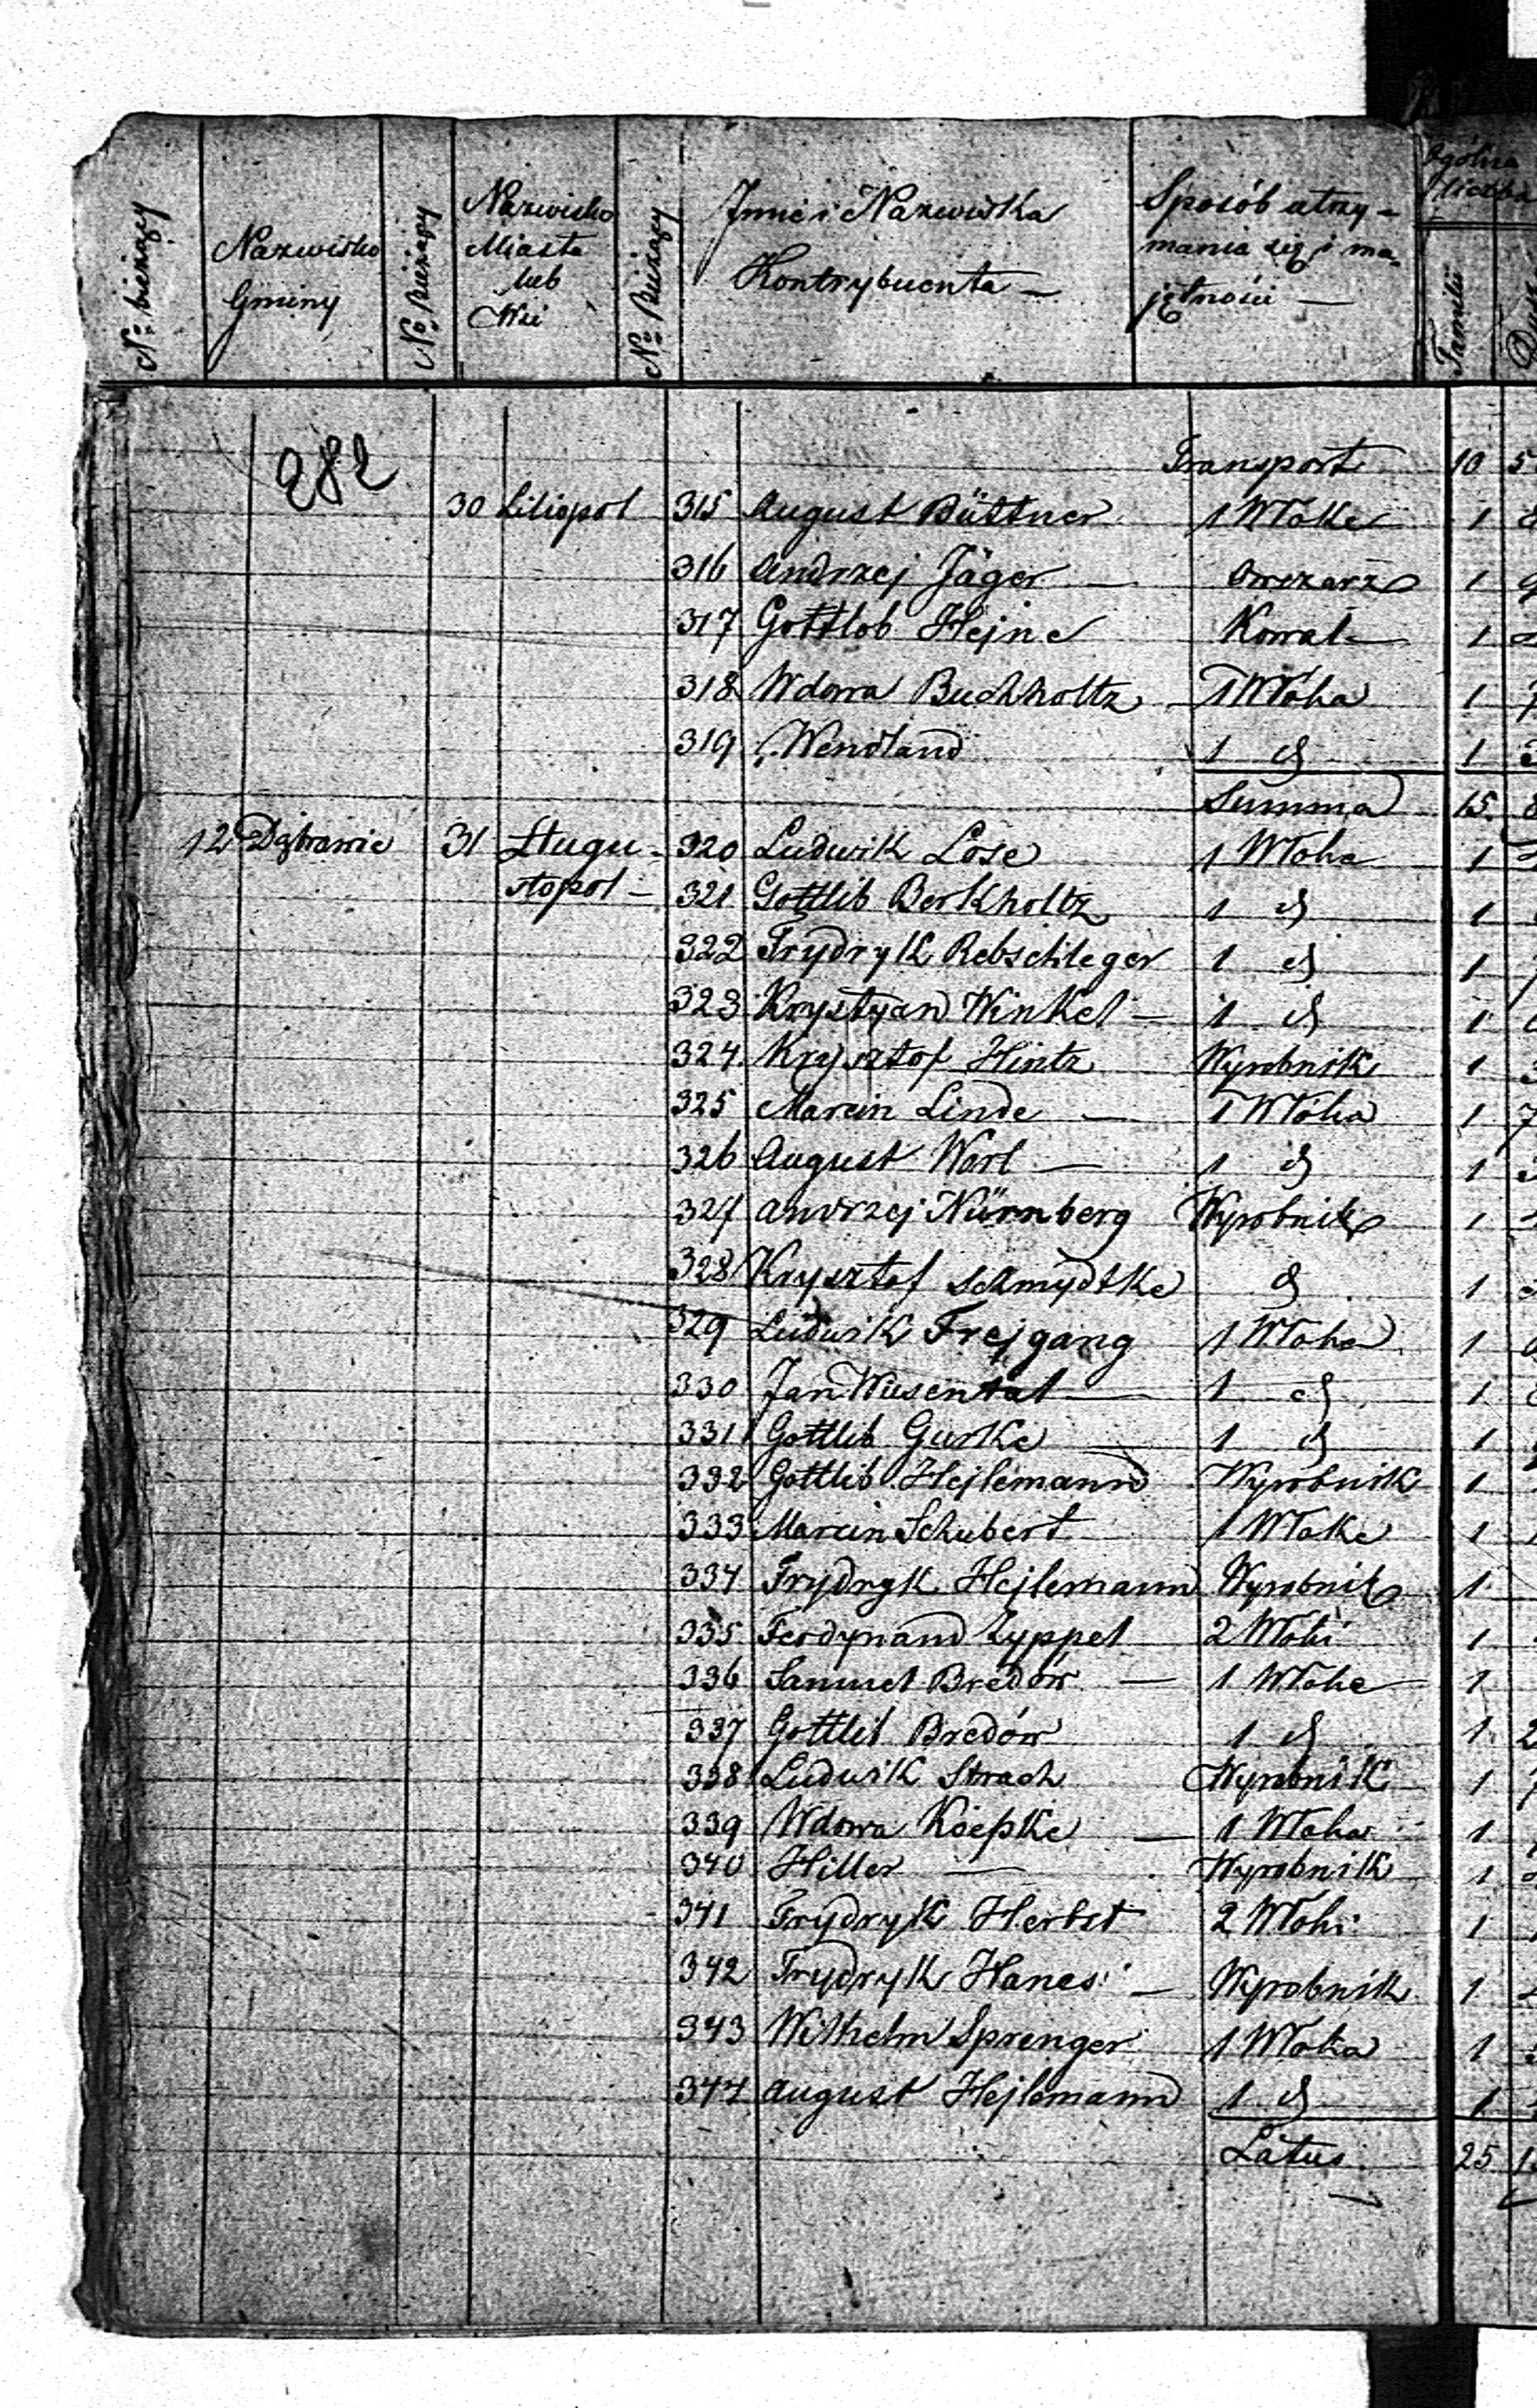 No bieżący Nazwisko Gminy No Bieżący Nazwisko Miasta lub Wsi No Bieżący Jmie i Nazwiska Kontrybuenta — Sposób utrzymania się i majętności — Ogólna liczba Familii
282
Transport 10 5
30 Liliopol 315 August Büttner 1 Włóke 1
316 Andrzej Jäger — Owczarz 1
317 Gottlob Hejne Kowal — 1
318 Wdowa Buchholtz 1 Włóka 1 7
319 Wendland 1 d 1
Summa 15
12 Dąbrowie 31 Augu- 320 Ludwik Lose 1 Włoka 1
stopol — 321 Gottlib Berkholtz 1 d 1
322 Frydryk Rebschleger 1 d 1
323 Krystyan Winkel — 1 d 1
324 Krysztof Hintz Wyrobnik 1 3
325 Marcin Linde — 1 Włóka 1 7
326 August Worl — 1 d 1
327 Andrzej Nürnberg Wyrobnik 1
328 Krysztof Schmydtke d 1
329 Ludwik Frejgang 1 Włoka 1
330 Jan Wiesental — 1 d 1
331 Gottlib Gurke 1 d 1
332 Gottlib Hejlemann Wyrobnik 1
333 Marcin Schubert 1 Włoke 1
334 Frydryk Hejlemann Wyrobnik 1
335 Ferdynand Zyppel 2 Włóki 1
336 Samuel Bredów — 1 Włoke 1
337 Gottlib Bredów 1 d 1 2
338 Ludwik Strach Wyrobnik 1
339 Wdowa Koepke — 1 Włoka 1
340 Hiller — Wyrobnik 1
341 Frydryk Herbst 2 Włoki 1
342 Frydryk Hanes — Wyrobnik 1
343 Wilhelm Sprenger 1 Włoka 1
344 August Hejlemann 1 d 1
Latus 25